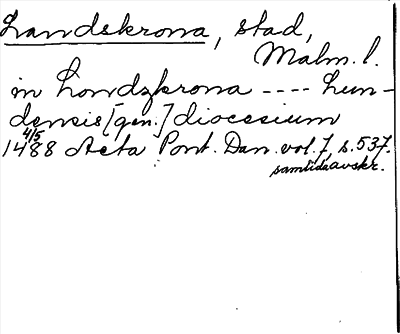 Landskrona, stad,
Malm. l.
in Londzkrona ---- Lun-
densis [gen.] diocesium
4/5
1488 Acta Pont. Dan. vol. 7, s. 537.
samtida avskr.